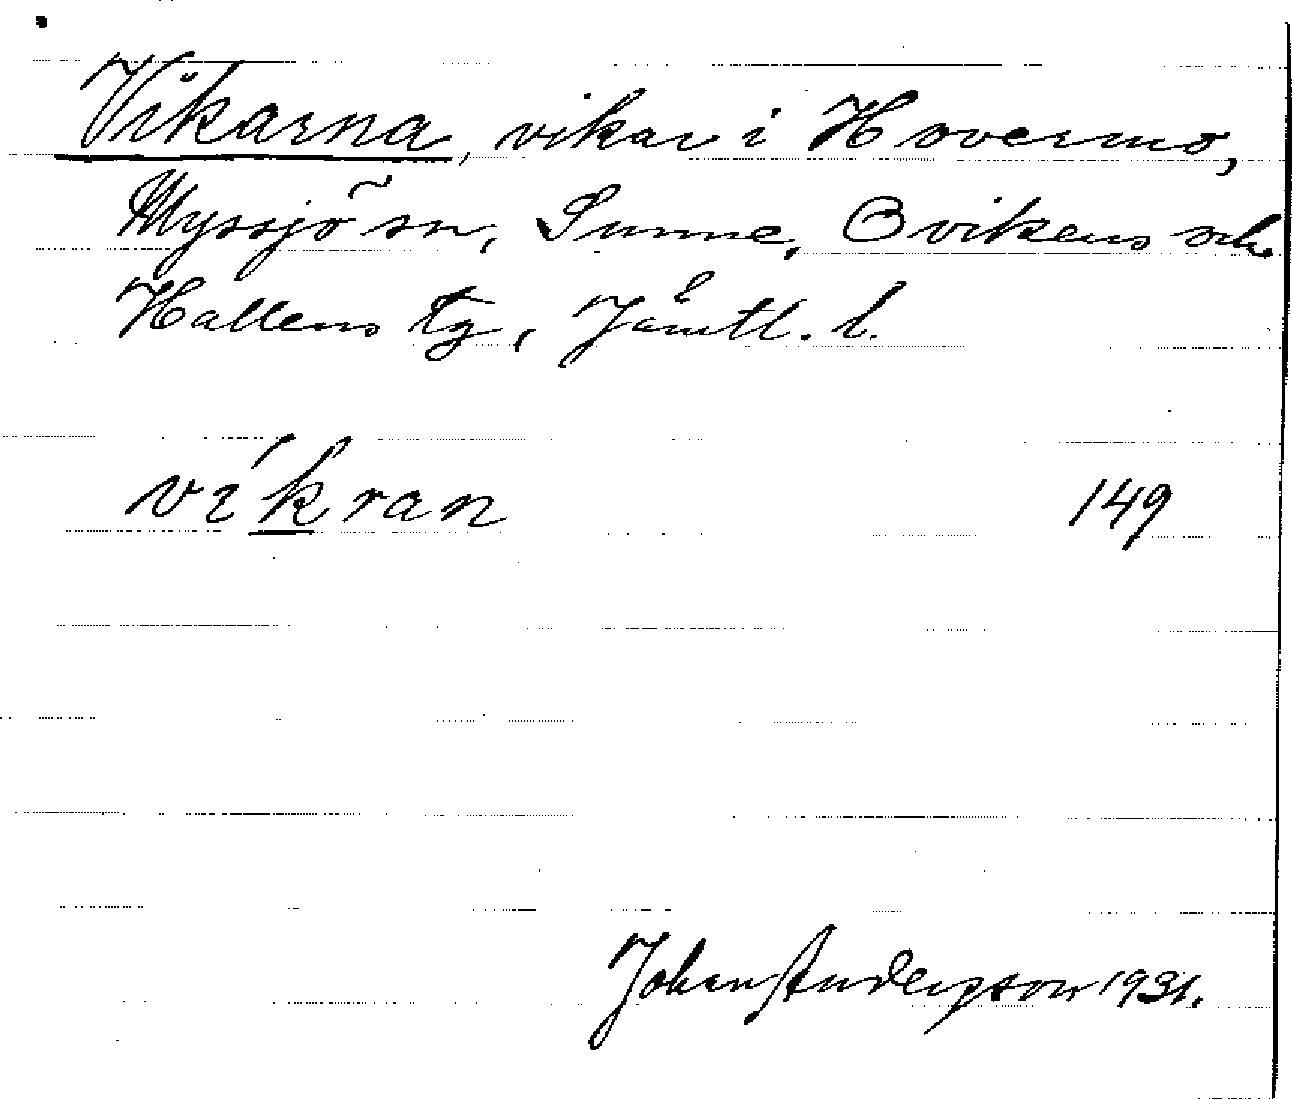 Vikarna, vikar i Hovermo,
Myssjö sn, Sunne, Ovikens och
Hallens tg, Jämtl. l.
víkran 149
Johan Anderson 1931.